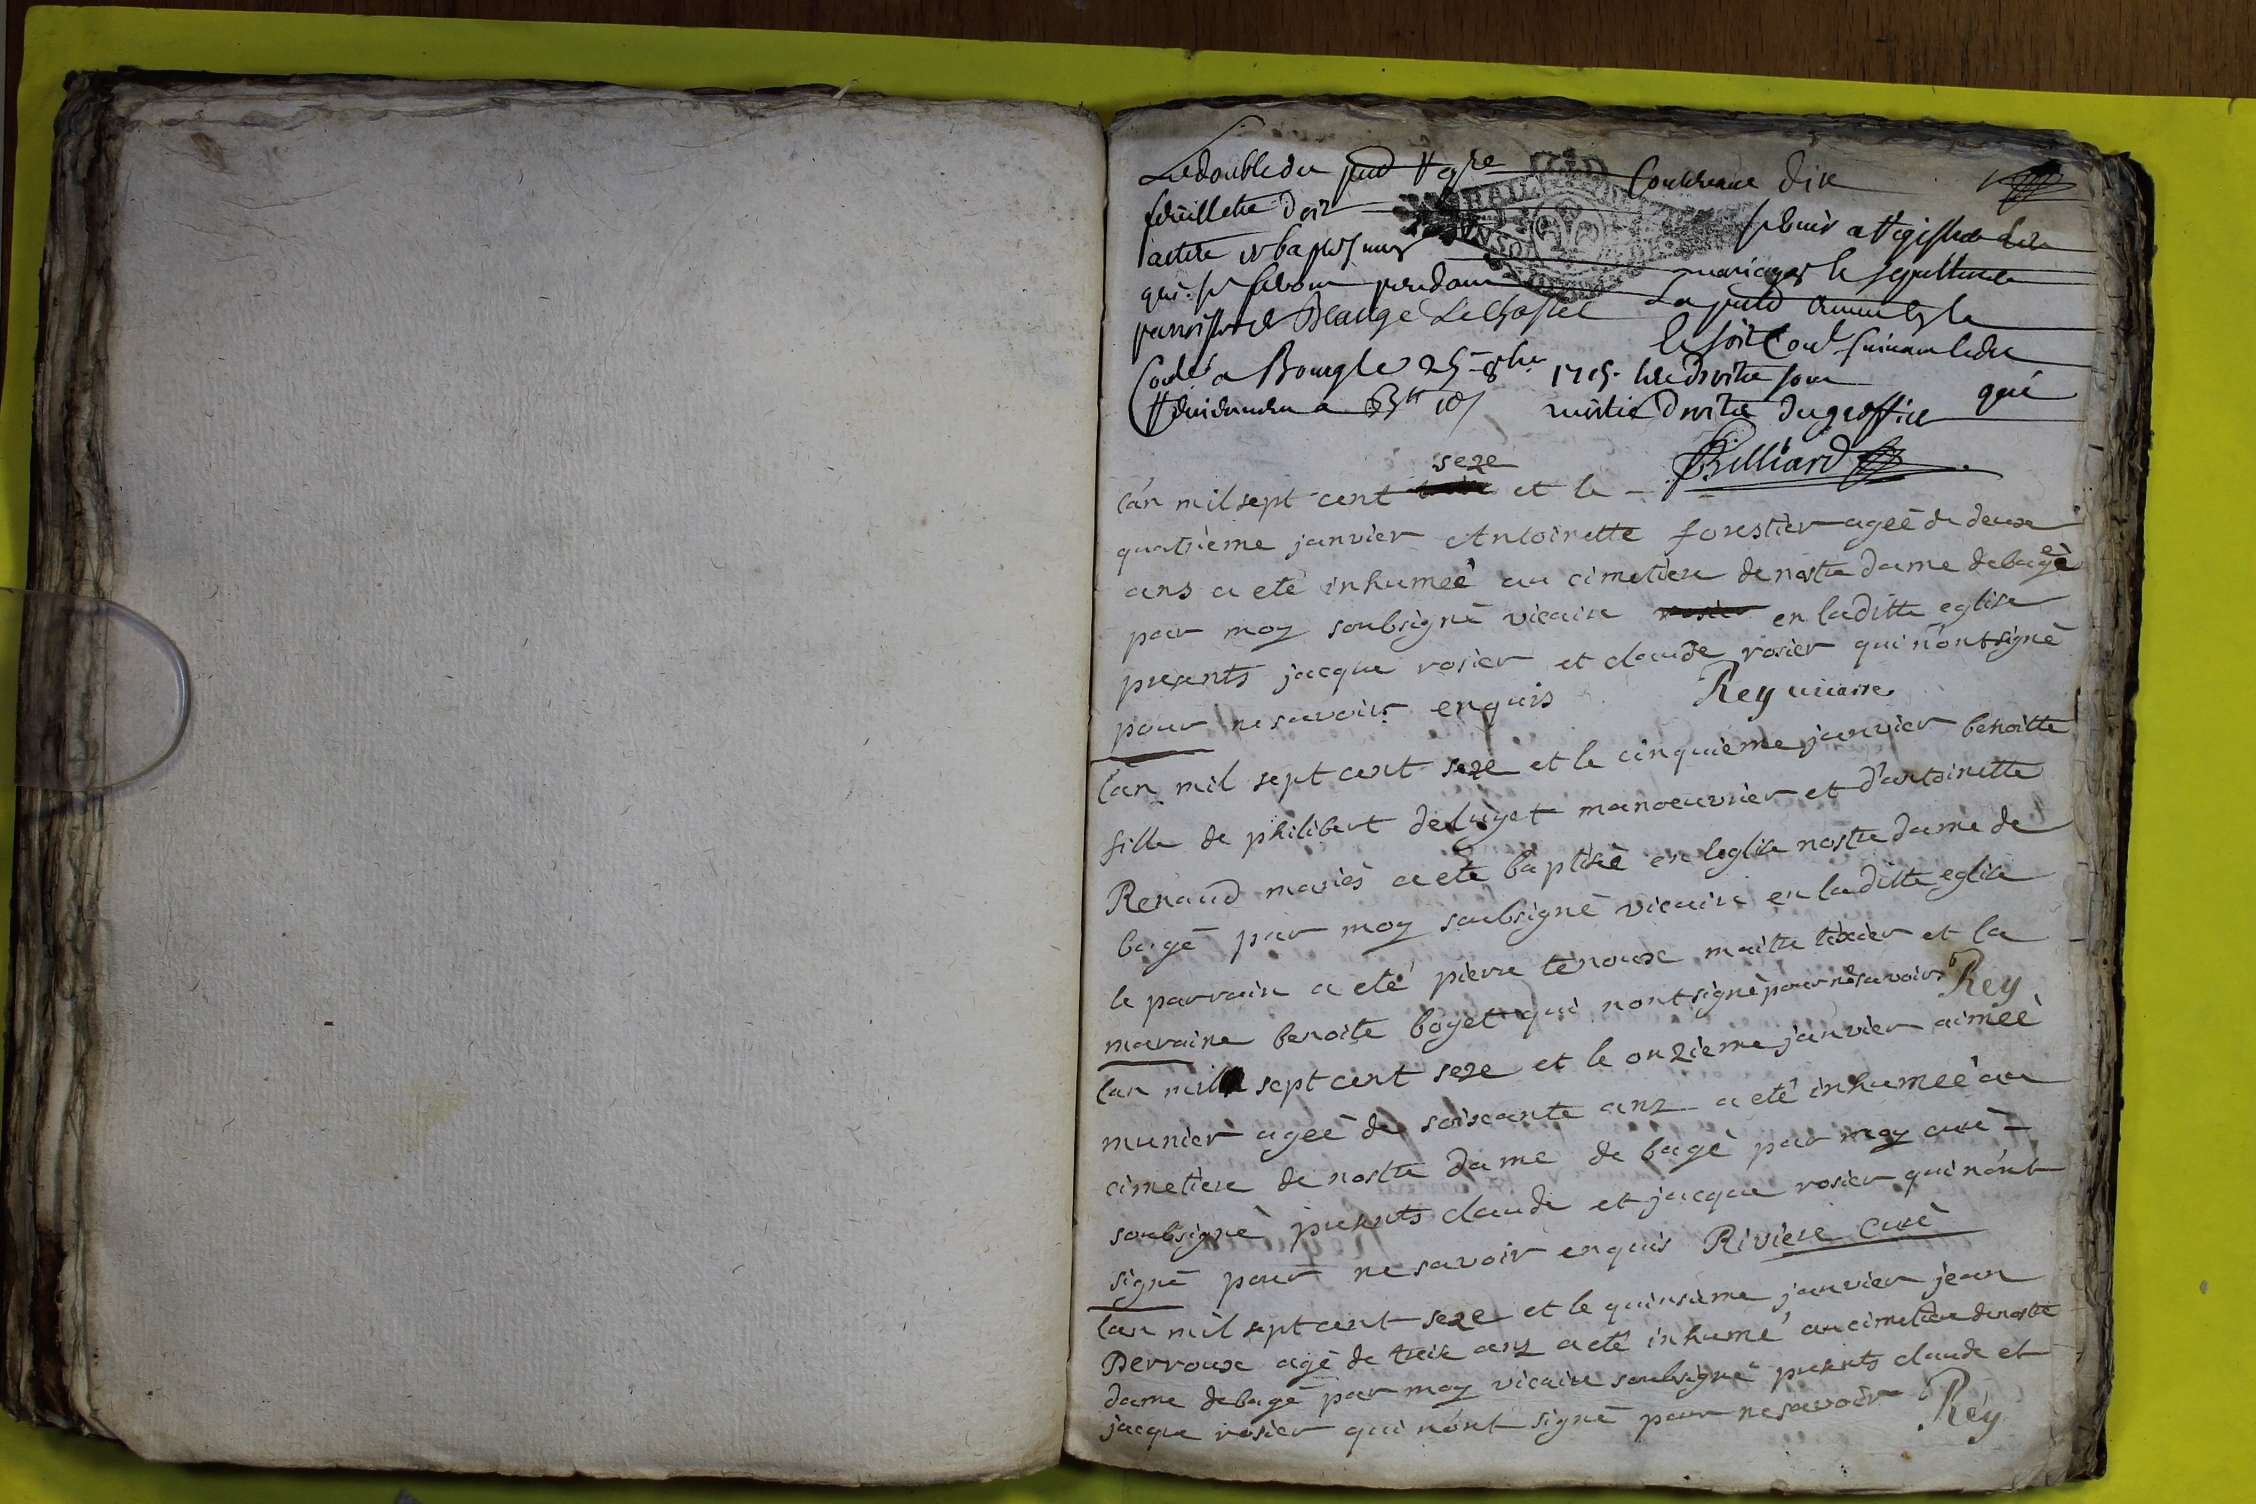 Le double du pnt Regre Contenant dix
feuillets doit servir a registrer les
actes de baptesmes mariages & sepultures
qui se feront pendant La pnte année en la
parroisse de Beaugé Le Chastel
Controllé a Bourg le 25 8bre 1715.
moitié droits du greffier qui
Billiard
seze
l'an mil sept cent et le
quatrieme janvier Antoinette forestier ageé de deux
ans a eté inhumeé au cimetiere de nostre dame de bagé
par moy soubsigné vicaire en laditte eglise
presents jacque rosier et claude rosier qui n'ont signé
pour ne savoir enquis Rey vicaire
l'an mil sept cent seze et le cinquieme janvier benoitte
fille de philibert deluget manoeuvrier et d'antoinette
Renaud mariés a eté baptisé en l'eglise nostre dame de
bagé par moy soubsigné vicaire en laditte eglise
le parrain a eté pierre tenoux maitre tixier et la
maraine benoite boyet qui n'ont signé pour ne savoir Rey
l'an mil sept cent seze et le onzieme janvier aimeé
munier ageé de soixante anz a eté inhumeé au
cimetiere de nostre dame de bagé par moy curé
soubsigné presents claude et jacque rosier qui n'ont
signé pour ne savoir enquis Riviere curé
l'an mil sept cent seze et le quinsieme janvier jean
Perroux agé de treize anz a eté inhumé au cimetiere de nostre
dame de bagé par moy vicaire soubsigné presents claude et
jacque rosier qui n'ont signé pour ne savoir Rey